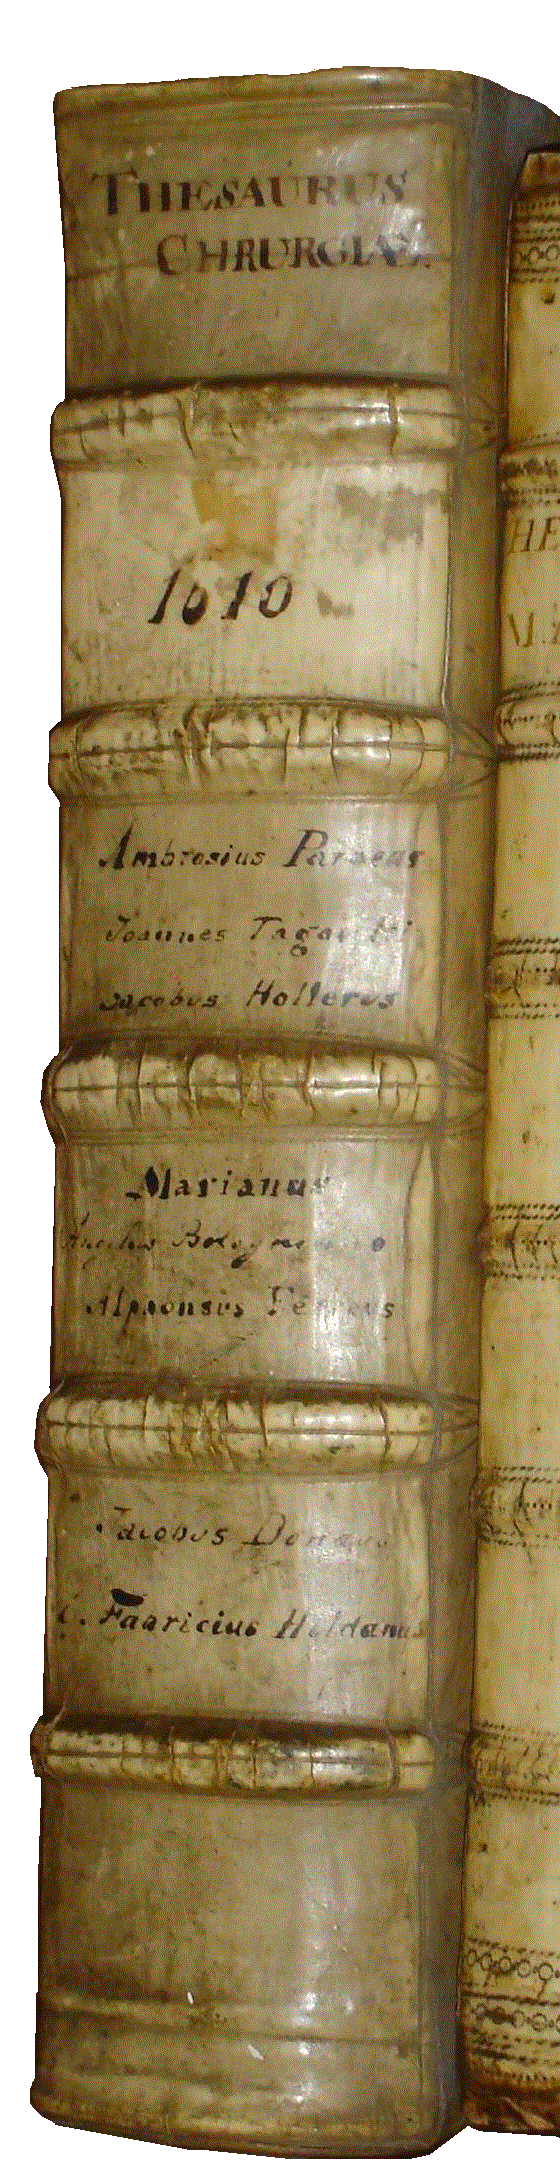 THESAURUS
CHRURGIAE.
1610
Ambrosius Paraeus
Joannes
Jacobus Hollerus
Marianus
Alphonsus Ferreus
Jacobus
Fabricius Hildanus
HE
M